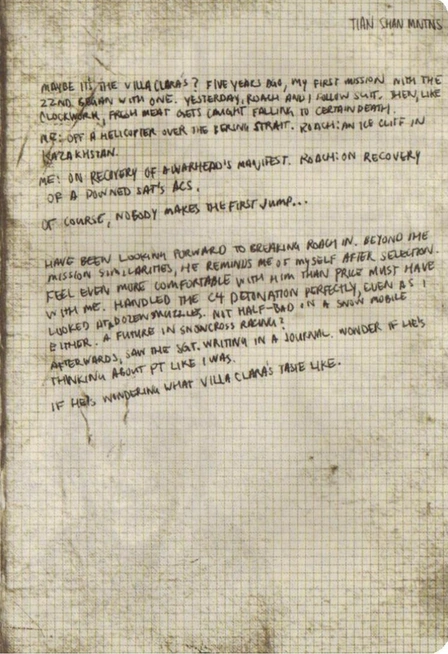 TIAN SHAN MNTNS
MAYBE IT'S THE VILLA CLARA'S? FIVE YEARS AGO, MY FIRST MISSION WITH THE
22ND BEGAN WITH ONE. YESTERDAY, ROACH AND I FOLLOW SUIT. THEN, LIKE
CLOCKWORK, FRESH MEAT GETS CAUGHT FALLING TO CERTAIN DEATH.
ME: OFF A HELICOPTER OVER THE BERING STRAIT. ROACH: AN ICE CLIFF IN
KAZAKHSTAN.
ME: ON RECOVERY OF A WARHEAD'S MANIFEST. ROACH: ON RECOVERY
OF A DOWNED SAT'S ACS.
OF COURSE, NOBODY MAKES THE FIRST JUMP...
HAVE BEEN LOOKING FORWARD TO BREAKING ROACH IN. BEYOND THE
MISSION SIMILARITIES, HE REMINDS ME OF MYSELF AFTER SELECTION.
FEEL EVEN MORE COMFORTABLE WITH HIM THAN PRICE MUST HAVE
WITH ME. HANDLED THE C4 DETONATION PERFECTLY, EVEN AS I
LOOKED AT A DOZEN MUZZLES. NOT HALF-BAD ON A SNOW MOBILE
EITHER. A FUTURE IN SNOWCROSS RACING?
AFTERWARDS, SAW THE SGT. WRITING IN A JOURNAL. WONDER IF HE'S
THINKING ABOUT PT LIKE I WAS.
IF HE'S WONDERING WHAT VILLA CLARA'S TASTE LIKE.